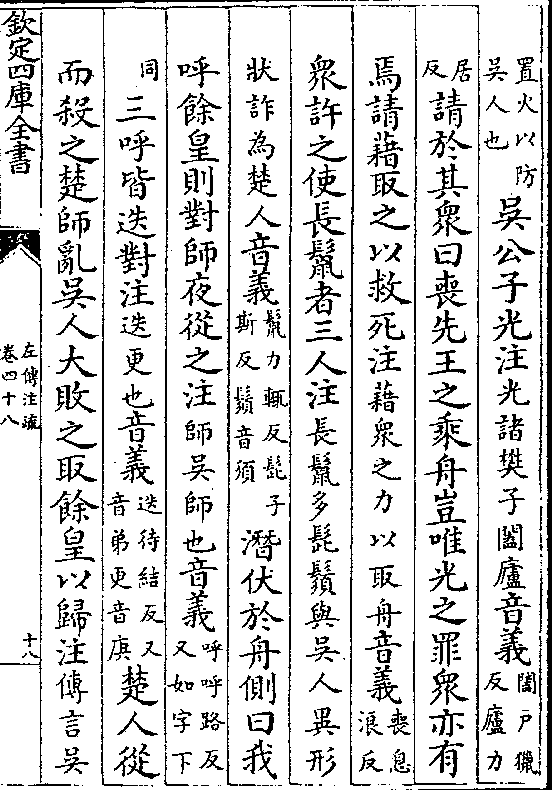 置火以防
吳人也
吳公子光注光諸樊子闔廬音義
闔戶獵
反廬力
居
反
請於其衆曰喪先王之乘舟豈唯光之罪衆亦有
焉請藉取之以救死注藉衆之力以取舟音義
喪息
浪反
衆許之使長鬛者三人注長鬛多髭鬚與吳人異形
狀詐為楚人音義
鬛力輒反髭子
斯反鬚音須
潛伏於舟側曰我
呼餘皇則對師夜從之注師吳師也音義
呼呼路反
又如字下
同
三呼皆迭對注迭更也音義
迭待結反又
音弟更音庚
楚人從
而殺之楚師亂吳人大敗之取餘皇以歸注傳言吳
欽定四庫全書
左傳注疏
卷四十八
十八